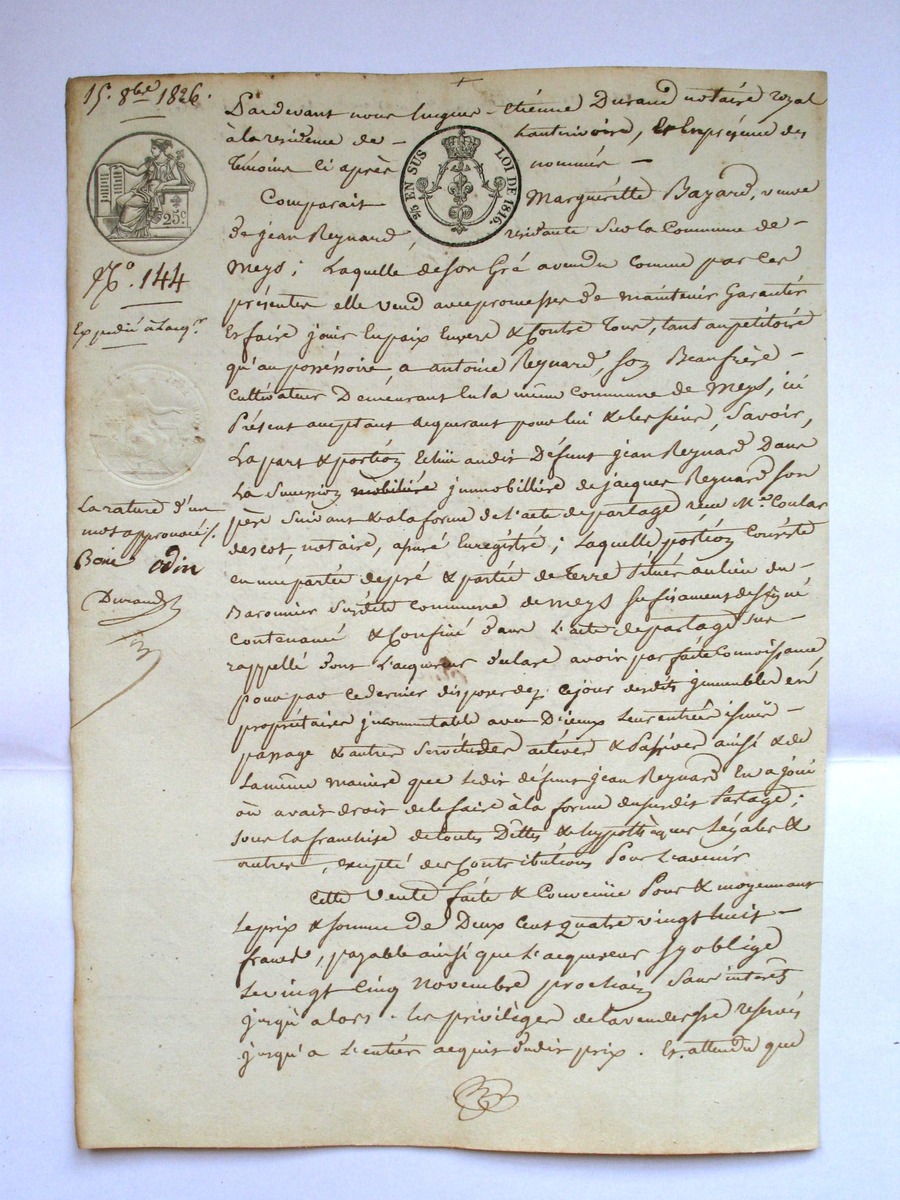 15. 8bre 1826.
25c
No. 144
Expédié à l'acqr.
La rature d'un
mot approuvée
odin
Durand
EN SUS LOI DE 1816.
Pardevant nous hugues-Etiénne Durand notaire royal
à la résidence de - hauterivoire, Et En présence des
témoins ci après nommés -
Comparait Marguéritte Bayard, veuve
de jean Reynard, résidante sur la Commune de -
Meys; Laquelle de son Gré a vendu comme par Ces
présentes elle vend avec promesses de maintenir Garantir
Et faire jouir En paix Envers & Contre Tous, tant au pétitoire
qu'au posséssoire a antoine Reynard, son Beaufrère -
Cultivateur Demeurant En la même Commune de Meys, ici
Présent acceptant acquerant pour lui & les siens, Savoir,
La part & portion Echüe audit Défunt jean Reynard Dans
La Succession mobiliére jmmobilliére de jacques Reynard son
père Suivant & a la forme de l'acte de partage reçu Me. Coular
descot, notaire, Enregistré; Laquelle portion Consiste
en une partie de pré & partie de Terre Situées au lieu du -
Baronnier Susdite Commune de Meys suffisament désigné
Contenancé & Confiné dans L'acte de partage sus-
rappellé dont L'acquereur déclare avoir parfaite Connoissance
pour par ce dernier disposer dez ce jour desdits jmmeubles en
propriétaire jncommutable avec D'iceux Leurs entrée issüe -
passage & autres Servitudes actives & Passives ainsi & de
La même manière que Ledit défunt jean Reynard En a joui
où avait droit de le faire à la forme du susdit Partage;
sous la franchise de toutes Déttes & hypothèques Légales &
autres, excépté des Contributions Pour L'avenir
Cette Vente faite & Convenüe Pour & moyennant
Le prix & somme de Deux Cent Quatre vingt huit -
francs, payable ainsi que L'acquereur s'y oblige
Le vingt Cinq Novembre prochain Sans intérêts
jusqu'alors. Les priviléges de la venderesse reservés
jusqu'a L'entier acquit dudit prix. Et attendu que